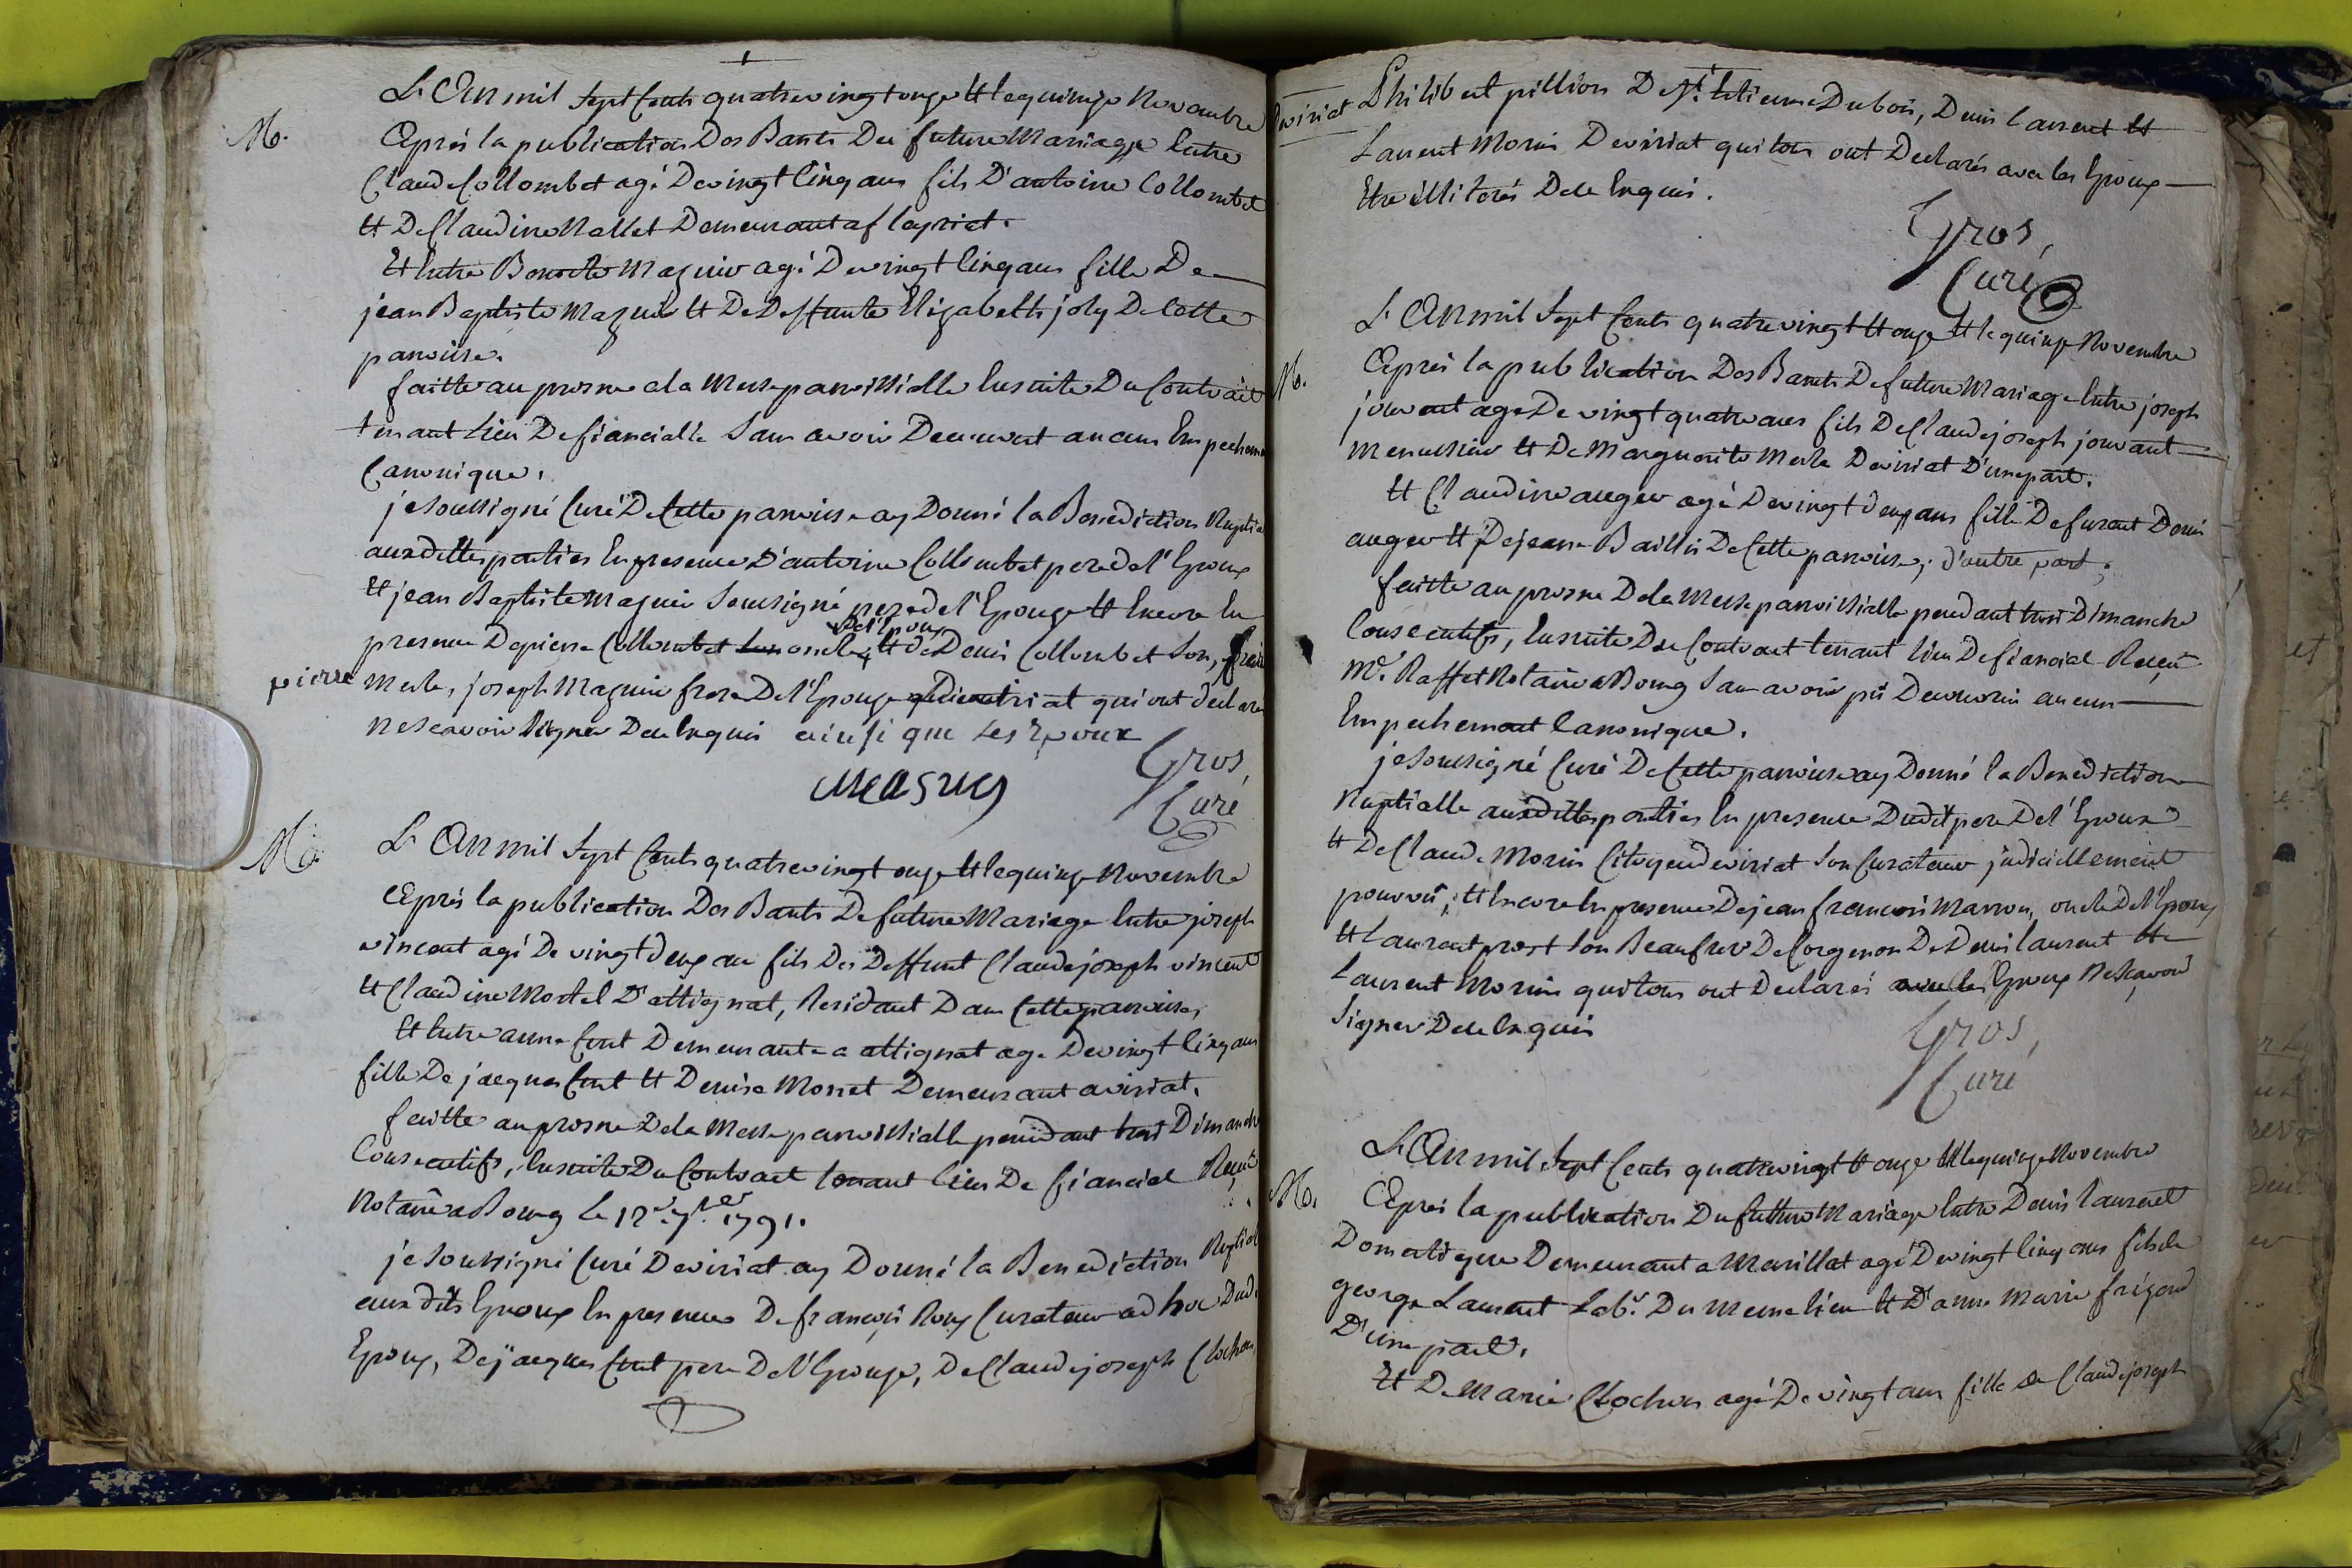 M.
L'An mil sept cents quatrevingt onze et le quinze Novembre
Après la publication Des Bants Du future Mariage Entre
Claude Collombet agé De vingt Cinq ans fils D'antoine Collombet
et De Claudine Mallet Demeurant a fleyriat.
Et Entre Benoite Mazuir agé De vingt Cinq ans fille De
jean Baptiste Mazuir et De Deffunte Elizabeth joly De Cette
paroisse.
faitte au prosne a la Messe paroissialle Ensuite Du Contract
tenant lieu De fiancialle sans avoir Decouvert aucun Empechem
Canonique.
je soussigné Curé De Cette paroisse ay Donné la Benediction Nuptia
auxdittes parties En presence D'antoine Collombet pere de l'Epoux
et jean Baptiste Mazuir soussigné pere de l'Epouze et Encore En
presence De pierre Collombet son oncle De l'Epoux et de Denis Collombet son frere
pierre Merle, joseph Mazuir frere De l'Epouze de viriat qui ont declaré
ne scavoir signer De ce Enquis ainsi que les Epoux
Measuy
Gros,
Curé
M.
L'An mil sept Cents quatrevingt onze et le quinze Novembre
Après la publication Des Bants De future Mariage Entre joseph
vincent agé De vingt deux an fils De Deffunt Claude joseph vincent
et Claudine Mortel D'attignat, Residant Dans Cette paroisse,
Et Entre anne Cont Demeurante a attignat age De vingt Cinq ans
fille De jacques Cont et Denise Morret Demeurant a viriat.
faitte au prosne De la Messe paroissialle pendant trois Dimanche
Consecutifs, Ensuite Du Contract tenant lieu De fiancial Reçeu
Notaire a Bourg le 1791.
je soussigné Curé De viriat ay Donné la Benediction Nuptial
aux dits Epoux En presence De françois Roux Curateur ad hoc Dud
Epoux, De jacques Cont pere De l'Epouze, De Claude joseph Clochon,
De viriat Philibert pillion De St. Etienne Dubois, Denis Laurent et
Laurent Morin De viriat qui tous ont Declarés avec les Epoux
Etre illiterés De ce Enquis.
Gros,
Curé
M.
L'An mil sept Cents quatrevingt et onze et le quinze Novembre
Après la publication Des Bants De future Mariage Entre joseph
jouvent age De vingt quatre ans fils De Claude joseph jouvant
menussier et De Marguerite Merle De viriat D'une part.
Et Claudine auger agé De vingt deux ans fille De furent Denis
auger et De jeanne Baillis De Cette paroisse, d'autre part;
faitte au prosne De la Messe paroissialle pendant trois Dimanche
Consecutifs, Ensuite Du Contract tenant lieu De fiancial Receu
Me. Raffet Notaire a Bourg sans avoir pü Decouvrir aucun
Empechemant Canonique.
je soussigné Curé De Cette paroisse ay Donné la Benediction
Nuptialle auxdittes parties En presence Dudit pere De l'Epoux
et De Claude Morin Citoyen de viriat son Curateur judiciellement
pourvü; et Encore En presence De jean françois Marron, oncle De l'Epoux
et Laurent prost son Beaufrere De Corgenon De Denis laurent et
Laurent Morin qui tous ont Declarés avec les Epoux Ne sçavoir
signer De ce Enquis
Gros,
Curé
M.
L'An mil sept Cents quatrevingt et onze et le quinze Novembre
Après la publication Du future Mariage Entre Denis laurent
Domestique Demeurant a Marillat agé De vingt Cinq ans fils de
george Laurent Labr. Du meme lieu et D'anne Marie frizond
D'une part.
Et De Marie Clochon agé De vingt ans fille De Claude joseph